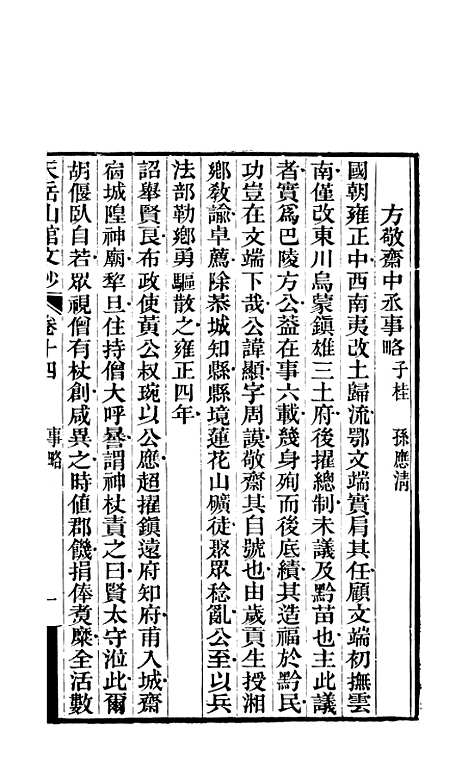 方敬齋中丞事略 子桂 孫應清
國朝雍正中西南夷改土歸流鄂文端實肩其任顧文端初撫雲
南僅改東川烏蒙鎮雄三土府後擢總制未議及黔苗也主此議
者實爲巴陵方公葢在事六載幾身殉而後底績其造福於黔民
功豈在文端下哉公諱顯字周謨敬齋其自號也由歲貢生授湘
鄉教諭卓薦除恭城知縣縣境蓮花山礦徒聚眾稔亂公至以兵
法部勒鄉勇驅散之雍正四年
詔舉賢良布政使黃公叔琬以公應超擢鎮遠府知府甫入城齋
宿城隍神廟犂旦住持僧大呼譽謂神杖責之曰賢太守涖此爾
胡偃臥自若眾視僧有杖創咸異之時値郡饑捐俸煑糜全活數
天岳山館文鈔 卷十四 事略 一